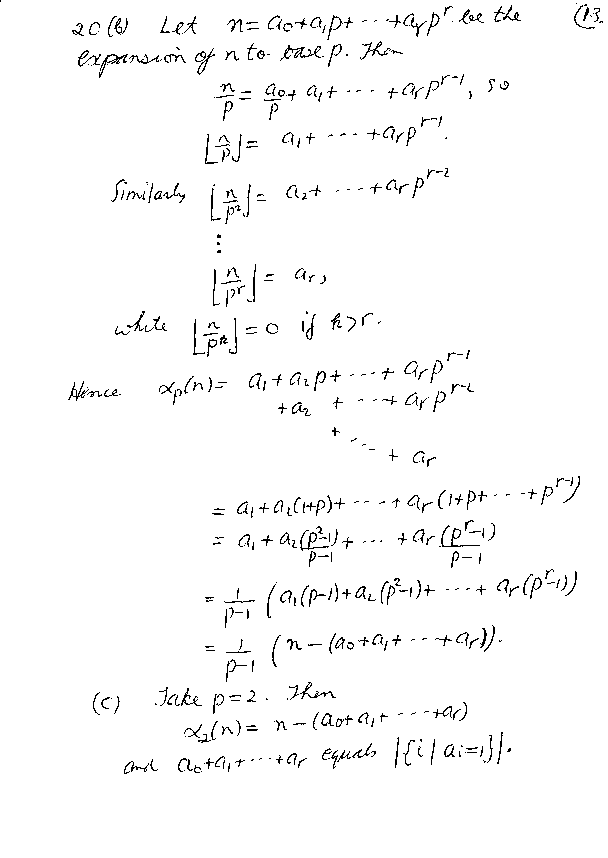 20(b) Let n = a₀+a₁p+ ··· +aᵣpʳ be the (13.
expansion of n to base p. Then
n/p = a₀/p + a₁ + ··· + aᵣpʳ⁻¹, so
⌊n/p⌋ = a₁ + ··· + aᵣpʳ⁻¹.
Similarly ⌊n/p²⌋ = a₂ + ··· + aᵣpʳ⁻²
⋮
⌊n/pʳ⌋ = aᵣ,
while ⌊n/pᵏ⌋ = 0 if k>r.
Hence αₚ(n) = a₁ + a₂p + ··· + aᵣpʳ⁻¹
+ a₂ + ··· + aᵣpʳ⁻²
+ ···
+ aᵣ
= a₁ + a₂(1+p) + ··· + aᵣ(1+p+ ··· +pʳ⁻¹)
= a₁ + a₂(p²-1)/(p-1) + ··· + aᵣ(pʳ-1)/(p-1)
= 1/(p-1) (a₁(p-1)+a₂(p²-1)+ ··· + aᵣ(pʳ-1))
= 1/(p-1) (n-(a₀+a₁+ ··· +aᵣ)).
(c) Take p=2. Then
α₂(n) = n-(a₀+a₁+ ··· +aᵣ)
and a₀+a₁+ ··· +aᵣ equals |{i | aᵢ=1}|.